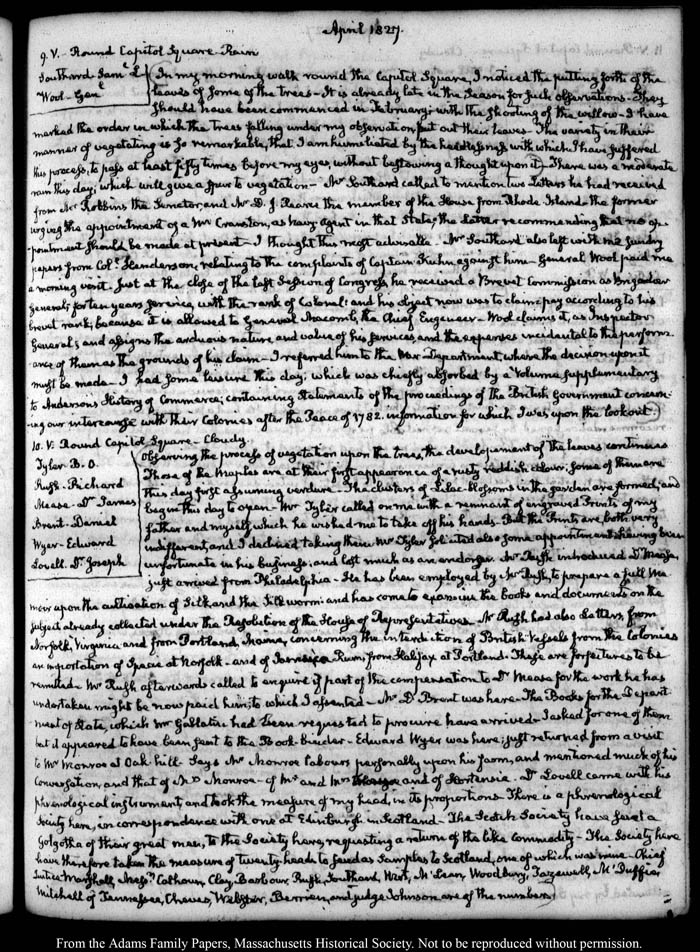 April 1827.
9. V. Round Capitol Square. Rain
Southard Sam.l L
Wool. Gen.l
In my morning walk round the Capitol Square, I noticed the putting forth of the
leaves of some of the trees. It is already late in the season for such observations. They
should have been commenced in February; with the shooting of the willow. I have
marked the order in which the trees falling under my observation put out their leaves. The variety in their
manner of vegetating is so remarkable, that I am humiliated by the heedlessness with which I have suffered
this process, to pass at least fifty times before my eyes, without bestowing a thought upon it. There was a moderate
rain this day; which will give a spur to vegetation. Mr Southard called to mention two Letters he had received
from Mr Robbins the Senator, and Mr D. J. Pearce the member of the House from Rhode Island. the former
urging the appointment of a Mr Cranston, as Navy agent in that State; the latter recommending that no ap-
pointment should be made at present. I thought this most adviseable. Mr Southard also left with me sundry
papers from Col.l Henderson, relating to the complaints of Captain Kuhn against him. General Wool paid me
a morning visit. Just at the close of the last Session of Congress, he received a Brevet Commission as Brigadier
General; for ten years service, with the rank of Colonel: and his object now was to claim pay according to his
brevet rank; because it is allowed to General Macomb, the Chief Engineer. Wool claims it, as Inspector
General; and assigns the arduous nature, and value of his services, and the expenses incidental to the perform-
ance of them as the grounds of his claim. I referred him to the War Department, where the decision upon it
must be made. I had some leisure this day; which was chiefly absorbed by a Volume supplementary
to Anderson's History of Commerce; containing Statements of the proceedings of the British Government concern-
ing our intercourse with their Colonies after the Peace of 1782. information for which I was upon the look out.
10. V. Round Capitol Square. Cloudy.
Tyler. B. O.
Rush. Richard
Mease. Dr James
Brent. Daniel
Wyer. Edward
Lovell. Dr Joseph
Observing the process of vegetation upon the trees, the developement of the leaves continues
Those of the Maples are at their first appearance of a rusty reddish colour; some of them are
this day first assuming verdure. The clusters of Lilac-blossoms in the garden are formed, and
begin this day to open. Mr Tyler called on me with a remnant of engraved Prints of my
father and myself, which he wished me to take off his hands. But the Prints are both very
indifferent, and I declined taking them. Mr Tyler solicited also some appointment having been
unfortunate in his business; and lost much as an endorser. Mr Rush introduced Dr Mease,
just arrived from Philadelphia. He has been employed by Mr Rush, to prepare a full Me-
moir upon the cultivation of Silk and the Silk worm: and has come to examine the books and documents on the
subject already collected under the Resolution of the House of Representatives. Mr Rush had also Letters from
Norfolk, Virginia and from Portland, Maine, concerning the interdiction of British Vessels from the Colonies
an importation of Specie at Norfolk. and of Jamaica Rum, from Halifax at Portland. These are forfeitures to be
remitted. Mr Rush afterwards called to enquire if part of the compensation to Dr Mease for the work he has
undertaken might be now paid him; to which I assented. Mr D. Brent was here. The Books for the Depart-
ment of State, which Mr Gallatin had been requested to procure have arrived. I asked for one of them
but it appeared to have been sent to the Book-binder. Edward Wyer was here; just returned from a visit
to Mr Monroe at Oak hill. Says Mr Monroe labours personally upon his farm, and mentioned much of his
Conversation, and that of Mrs Monroe. of Mr and Mrs and of Hortensia. Dr Lovell came with his
phrenological instrument and took the measure of my head, in its proportions. There is a phrenological
Society here, in correspondence with one at Edinburgh in Scotland. The Scotch Society have sent a
Golgotha of their great men, to the Society here, requesting a return of the like commodity. The Society here
have therefore taken the measure of twenty heads to send as samples to Scotland, one of which was mine. Chief
Justice Marshall, Mess.rs Calhoun, Clay, Barbour, Rush, Southard, Wirt, McLean, Woodbury, Tazewell, McDuffie,
Mitchell of Tennessee, Cheves, Webster, Berrien, and judge Johnson are of the number.
From the Adams Family Papers, Massachusetts Historical Society. Not to be reproduced without permission.